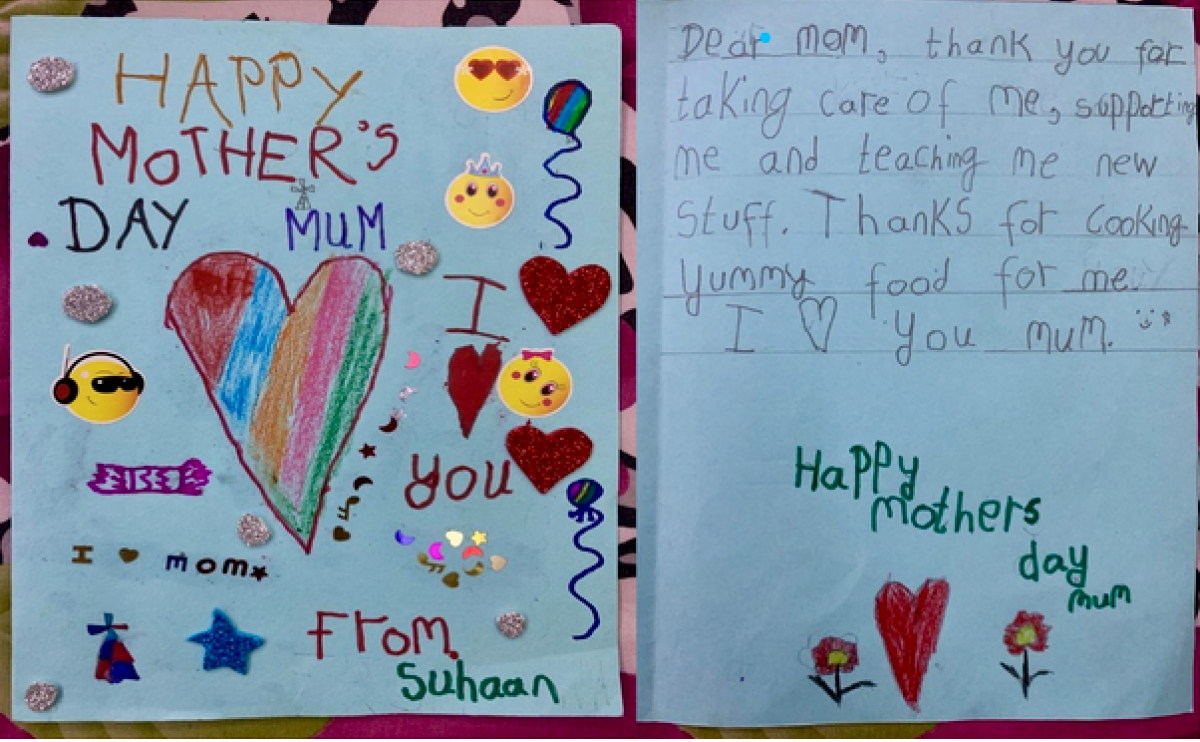 HAPPY
MOTHER'S
DAY MUM
I
YOU
I ♥ mom
From
Suhaan
Dear mom, thank you for
taking care of me, supporting
me and teaching me new
Stuff. Thanks for cooking
yummy food for me.
I ♡ you mum.
Happy
mothers
day
mum